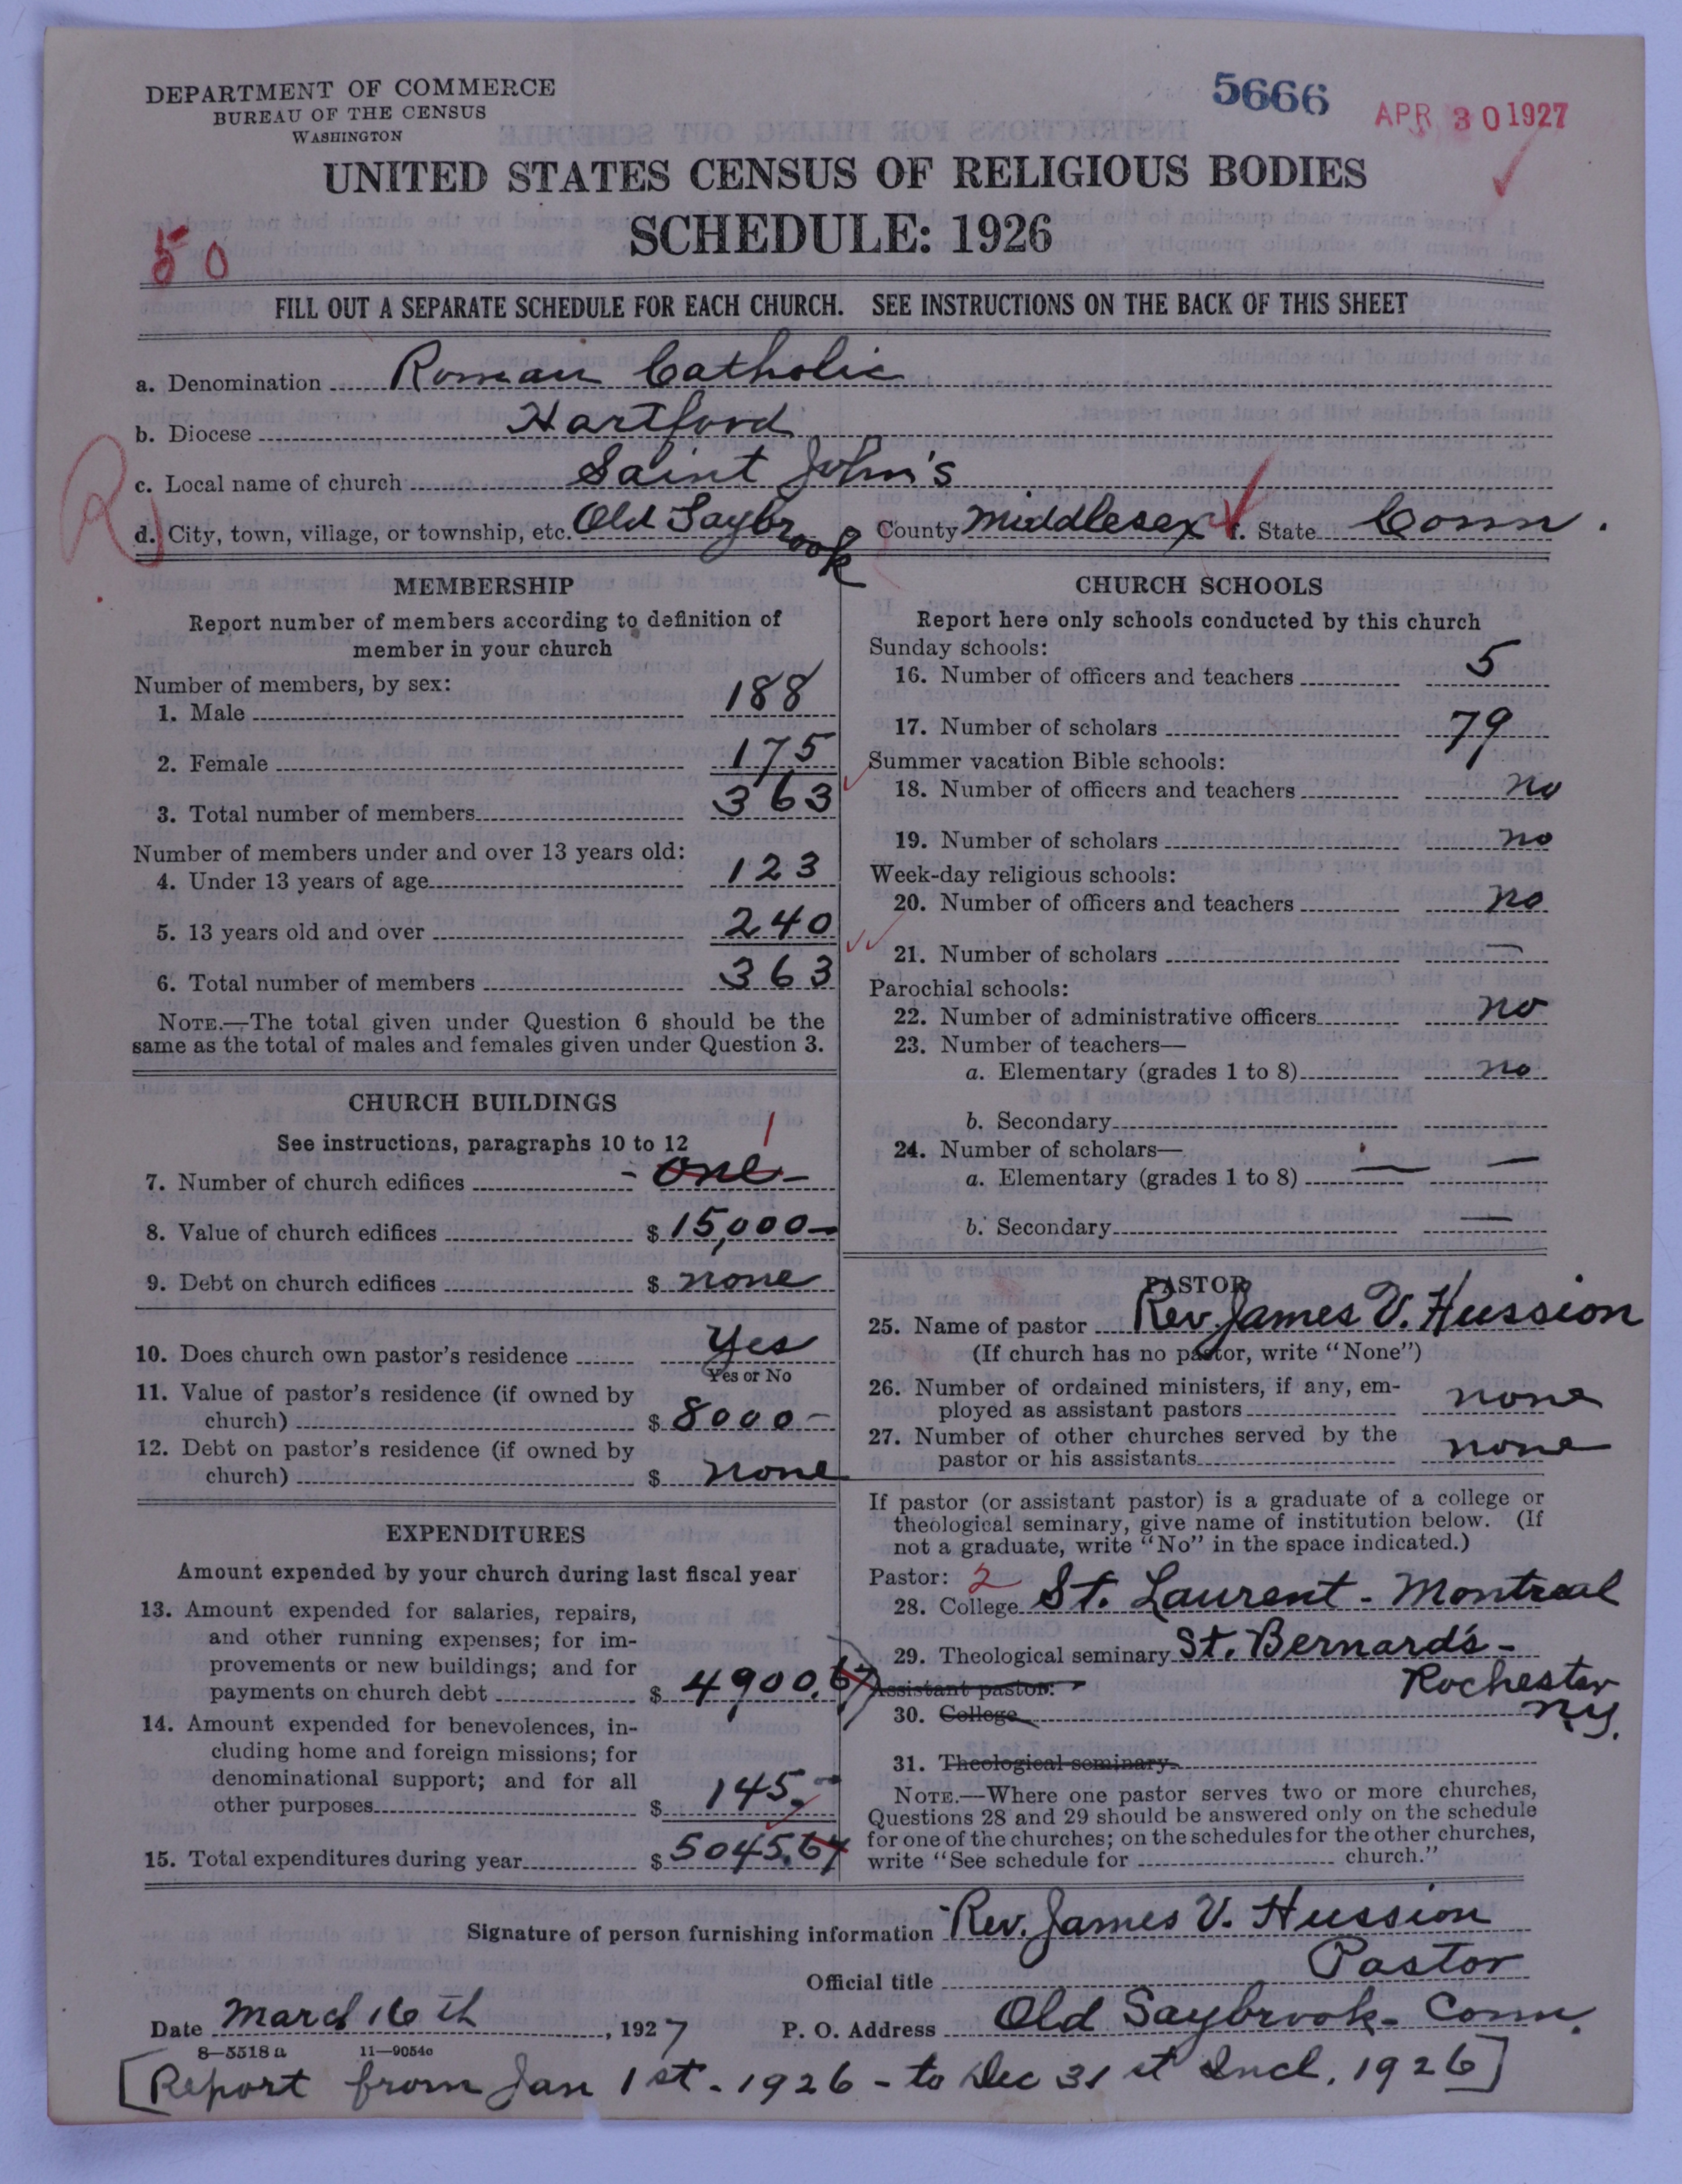 DEPARTMENT OF COMMERCE
BUREAU OF THE CENSUS
WASHINGTON
5666
APR 30 1927
UNITED STATES CENSUS OF RELIGIOUS BODIES
SCHEDULE: 1926
50
FILL OUT A SEPARATE SCHEDULE FOR EACH CHURCH. SEE INSTRUCTIONS ON THE BACK OF THIS SHEET
a. Denomination Roman Catholic
b. Diocese Hartford
c. Local name of church Saint John's
d. City, town, village, or township, etc. Old Saybrook County Middlesex f. State Conn.
MEMBERSHIP
Report number of members according to definition of
member in your church
Number of members, by sex:
1. Male 188
2. Female 175
3. Total number of members 363
Number of members under and over 13 years old:
4. Under 13 years of age 123
5. 13 years old and over 240
6. Total number of members 363
NOTE.—The total given under Question 6 should be the
same as the total of males and females given under Question 3.
CHURCH BUILDINGS
See instructions, paragraphs 10 to 12
1
7. Number of church edifices - one -
8. Value of church edifices $ 15,000 -
9. Debt on church edifices $ none
10. Does church own pastor's residence Yes
Yes or No
11. Value of pastor's residence (if owned by
church) $ 8000 -
12. Debt on pastor's residence (if owned by
church) $ none
EXPENDITURES
Amount expended by your church during last fiscal year
13. Amount expended for salaries, repairs,
and other running expenses; for im-
provements or new buildings; and for
payments on church debt $ 4900.67
14. Amount expended for benevolences, in-
cluding home and foreign missions; for
denominational support; and for all
other purposes $ 145. -
15. Total expenditures during year $ 5045.67
CHURCH SCHOOLS
Report here only schools conducted by this church
Sunday schools:
16. Number of officers and teachers 5
17. Number of scholars 79
Summer vacation Bible schools:
18. Number of officers and teachers no
19. Number of scholars no
Week-day religious schools:
20. Number of officers and teachers no
21. Number of scholars —
Parochial schools:
22. Number of administrative officers no
23. Number of teachers—
a. Elementary (grades 1 to 8) no
b. Secondary
24. Number of scholars—
a. Elementary (grades 1 to 8) — —
b. Secondary —
PASTOR
25. Name of pastor Rev. James V. Hussion
(If church has no pastor, write "None")
26. Number of ordained ministers, if any, em-
ployed as assistant pastors none
27. Number of other churches served by the
pastor or his assistants none
If pastor (or assistant pastor) is a graduate of a college or
theological seminary, give name of institution below. (If
not a graduate, write "No" in the space indicated.)
Pastor: 2
28. College St. Laurent - Montreal
29. Theological seminary St. Bernard's -
Assistant pastor: Rochester
30. College N.Y.
31. Theological seminary
NOTE.—Where one pastor serves two or more churches,
Questions 28 and 29 should be answered only on the schedule
for one of the churches; on the schedules for the other churches,
write "See schedule for church."
Signature of person furnishing information Rev. James V. Hussion
Official title Pastor
Date March 16th, 1927 P. O. Address Old Saybrook - Conn.
8—5518 a 11—9054c
[Report from Jan 1st - 1926 - to Dec 31st Incl. 1926]